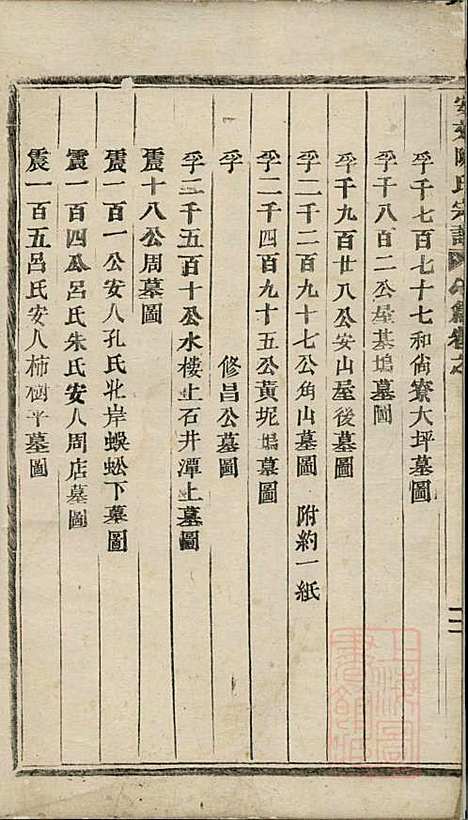 安文陳氏宗譜
孚千七百七十七和尙寮大坪墓圖
孚千八百二公屋基塢墓圖
孚千九百廿八公安山屋後墓圖
孚二千二百九十七公角山墓圖 附約一紙
孚二千四百九十五公黃坭塢墓圖
孚 修昌公墓圖
孚二千五百十公水樓上石井潭上墓圖
震十八公周墓圖
震一百一公安人孔氏北岸蜈蚣下墓圖
震一百四公呂氏朱氏安人周店墓圖
震一百五呂氏安人柿樹平墓圖